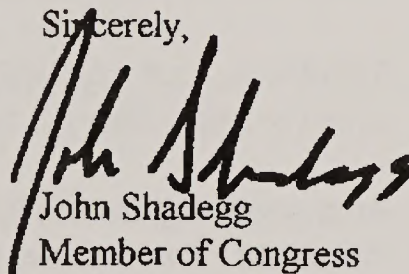 Sincerely,
John Shadegg
John Shadegg
Member of Congress